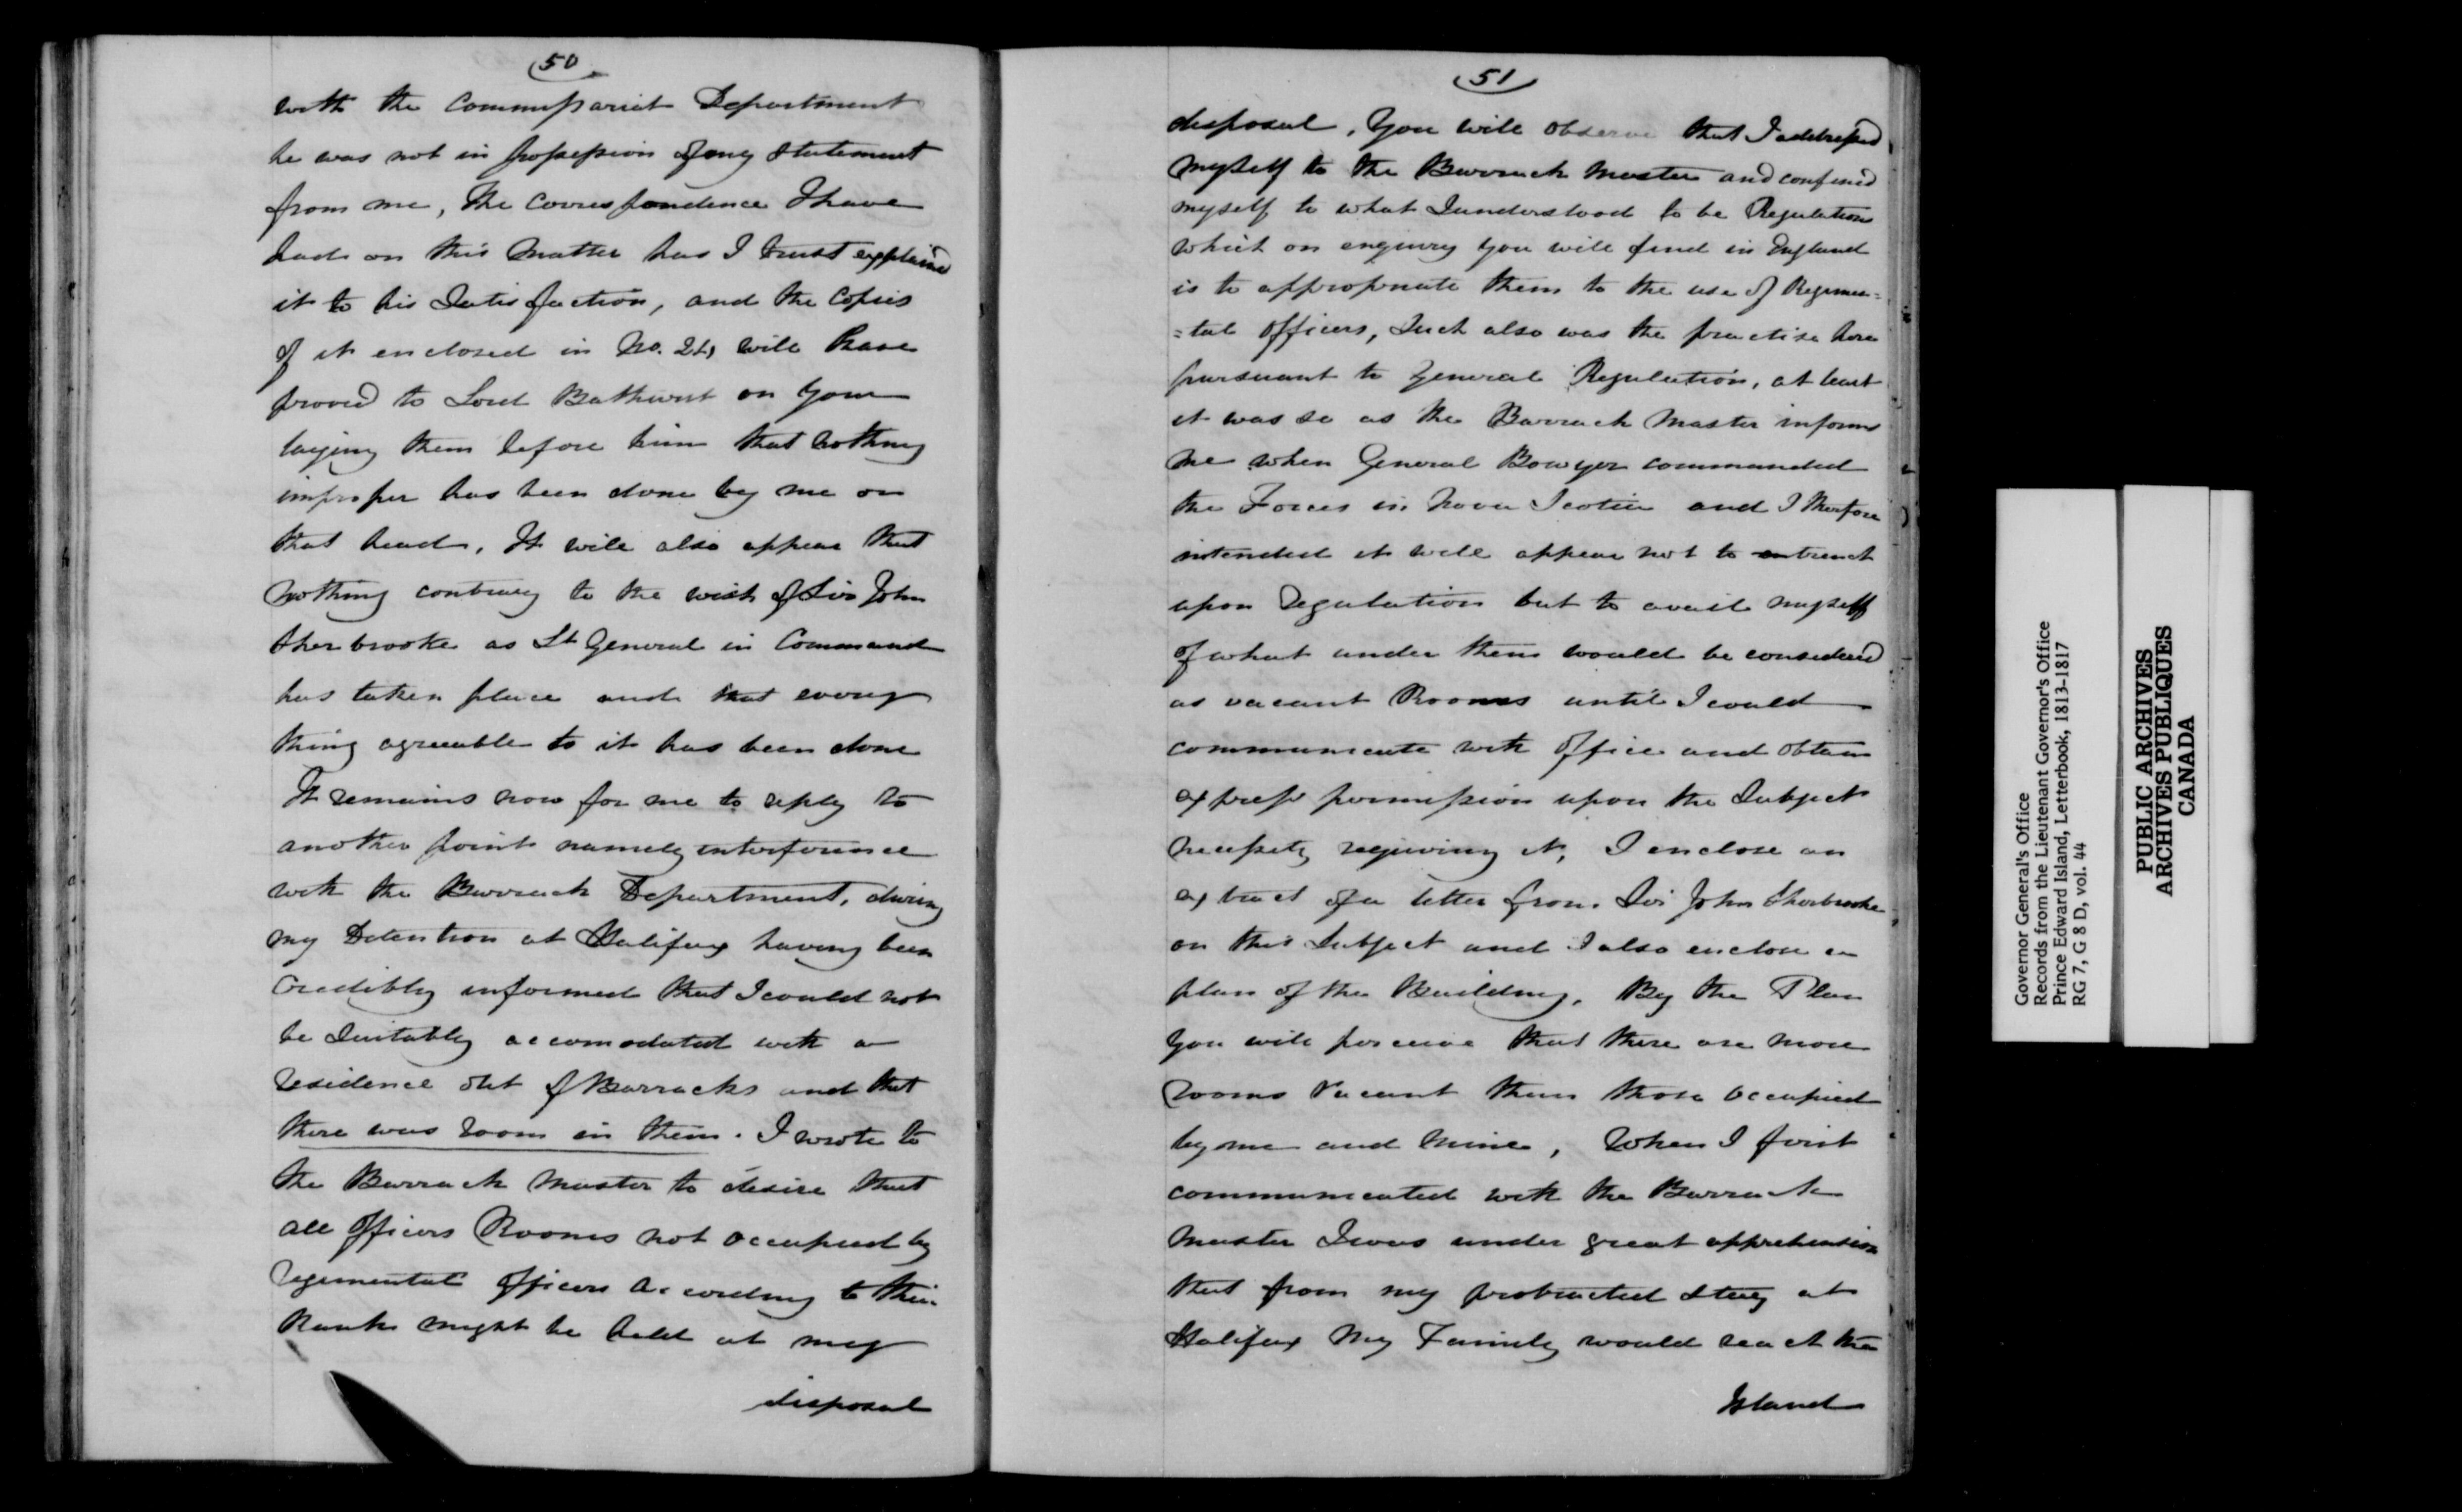 50
with the Commissariat Department
he was not in possession of any Statement
from me, The Correspondence I have
had on this Matter has I trust explained
it to his Satisfaction, and the Copies
of it enclosed in No. 21, will have
proved to Lord Bathurst on your
laying them before him that nothing
improper has been done by me on
that head. It will also appear that
Nothing contrary to the wish of Sir John
Sherbrooke as Lt General in Command
has taken place and that every
thing agreeable to it has been done
It remains now for me to reply to
another point namely interference
with the Barrack Department, during
my Detention at Halifax having been
Credibly informed that I could not
be Suitably accomodated with a
residence out of Barracks and that
there was room in them. I wrote to
the Barrack Master to desire that
all Officers Rooms not occupied by
regimental Officers according to their
Rank might be held at my
disposal
51
disposal, You will observe that I addressed
Myself to the Barrack Master and confined
myself to what I understood to be Regulation
which on enquiry you will find in England
is to appropriate them to the use of Regimen=
=tal Officers, Such also was the practise here
pursuant to General Regulation, at least
it was so as the Barrack Master informs
me when General Bowyer commanded
the Forces in Nova Scotia and I therefore
intended it will appear not to entrench
upon regulation but to avail myself
of what under them would be considered
as vacant Rooms until I could
communicate with Office and obtain
express permission upon the Subject
necessity requiring it, I enclose an
extract of a letter from Sir John Sherbrooke
on this Subject and I also enclose a
plan of the Building. By the Plan
you will perceive that there are more
rooms vacant than those occupied
by me and mine, When I first
communicated with the Barrack
Master I was under great apprehension
that from my protracted Stay at
Halifax My Family would reach the
Island
Governor General's Office
Records from the Lieutenant Governor's Office
Prince Edward Island, Letterbook, 1813-1817
RG 7, G 8 D, vol. 44
PUBLIC ARCHIVES
ARCHIVES PUBLIQUES
CANADA